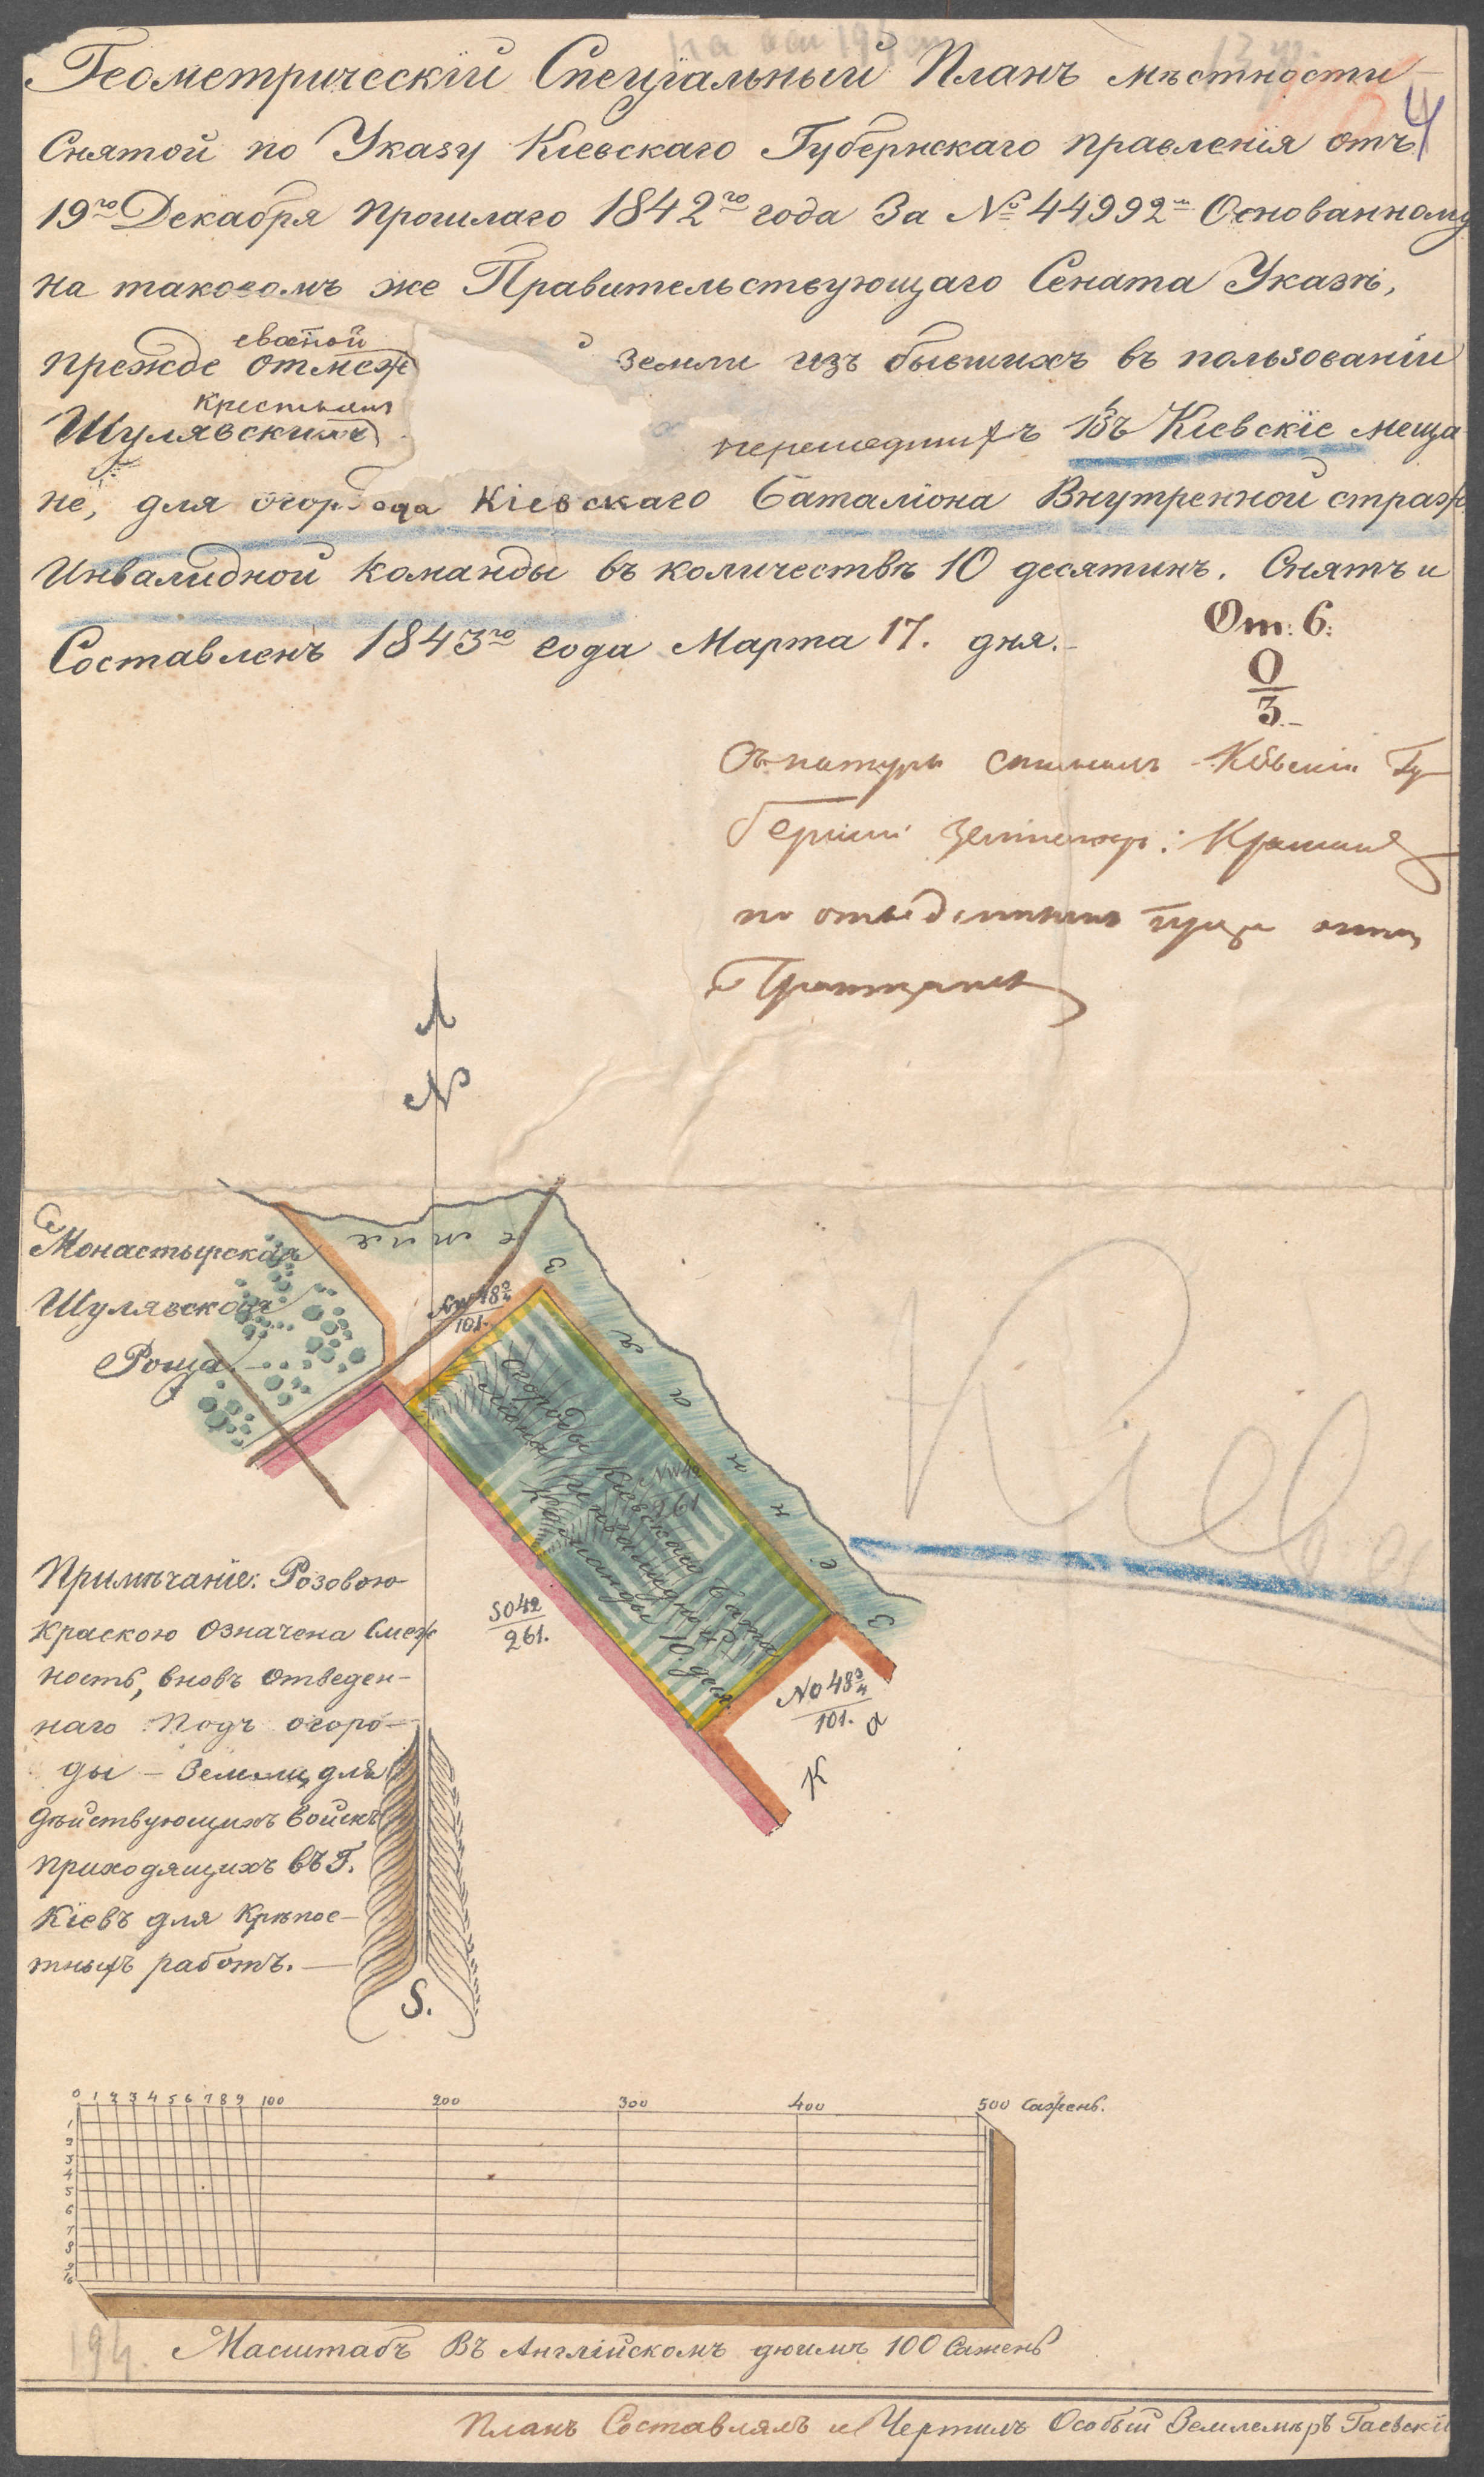 Геометрическій Спеціальный Планъ мѣстности
Снятой по Указу Кіевскаго Губернскаго правленія отъ
4
19го Декабря прошлаго 1842го года За № 44992м Основанному
на таковомъ же Правительствующаго Сената Указѣ,
прежде отмеж
еваной
земли изъ бывшихъ въ пользованіи
Шулявскихъ
крестьянъ
перешедшихъ въ Кіевскіе меща
не, для огорода Кіевскаго баталіона Внутренной страж
Инвалидной команды въ количествѣ 10 десятинъ. Снятъ и
Составленъ 1843го года Марта 17. дня.
От: 6:
0
3.
Съ натуры снималъ Кіевскій Гу
бернскій Землемеръ: 
N
Монастырская
Шулявская
Роща.
Землѣ
NW 48 3/4
101.
Огороды Кіевскаго Бата
ліона Инвалидной
Команды 10. деся.
NW 42
261
SO 42
261.
NO 48 3/4
101.
К а
Кіев
Примѣчаніе: Розовою
краскою означена Смеж
ность, вновь отведен-
наго подъ огоро-
ды – Земли, для
дѣйствующихъ войскъ
приходящихъ въ Г.
Кіевъ для Крѣпос-
тныхъ работъ.
S.
0 1 2 3 4 5 6 7 8 9 100 200 300 400 500 Сажень.
1
2
3
4
5
6
7
8
9
10
194.
Масштабъ Въ Англійскомъ дюймѣ 100 Сажень
Планъ Составлялъ и Чертилъ Особый Землемѣръ Гаевскій